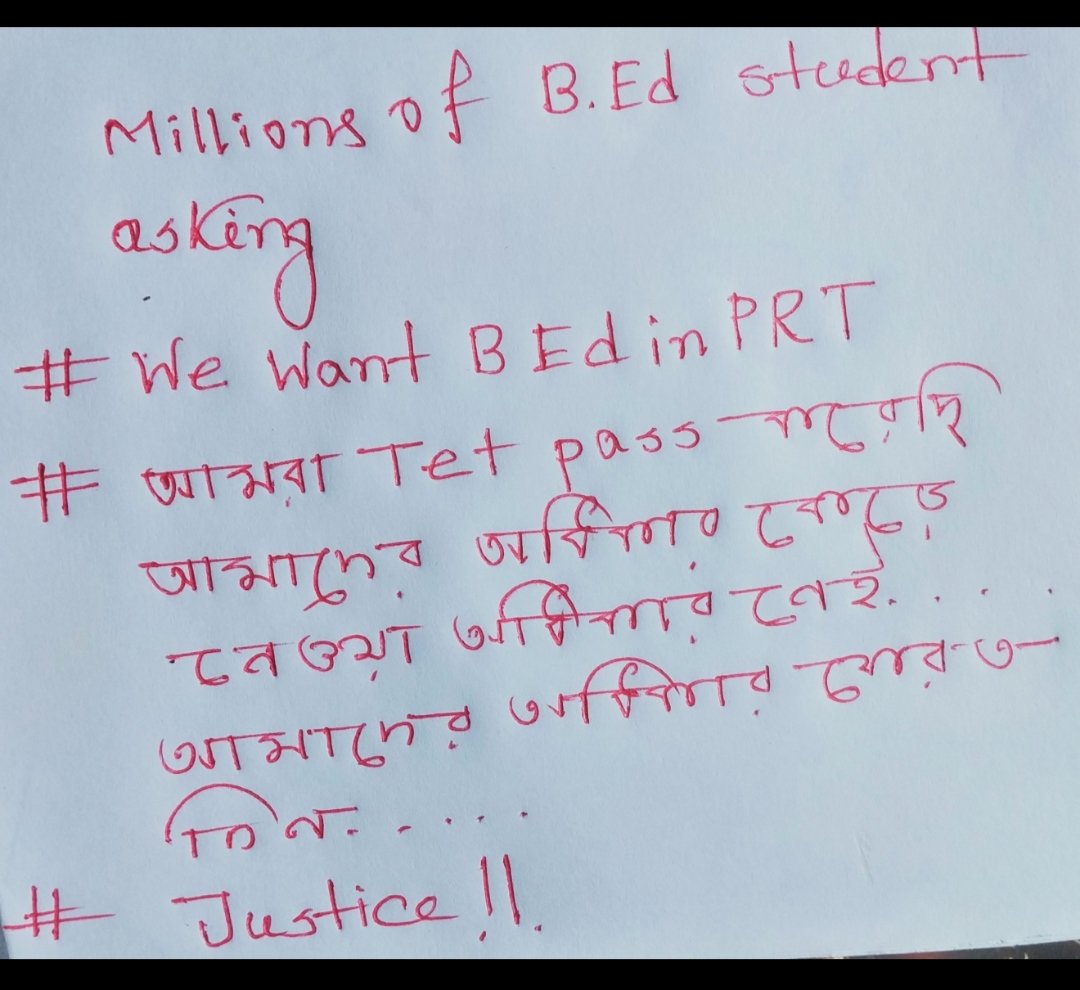 Millions of B.Ed student
asking
# We Want B Ed in PRT
# আমরা Tet pass করেছি
আমাদের অধিকার কেড়ে
নেওয়া অধিকার নেই....
আমাদের অধিকার ফেরত
দিন.....
# Justice !!